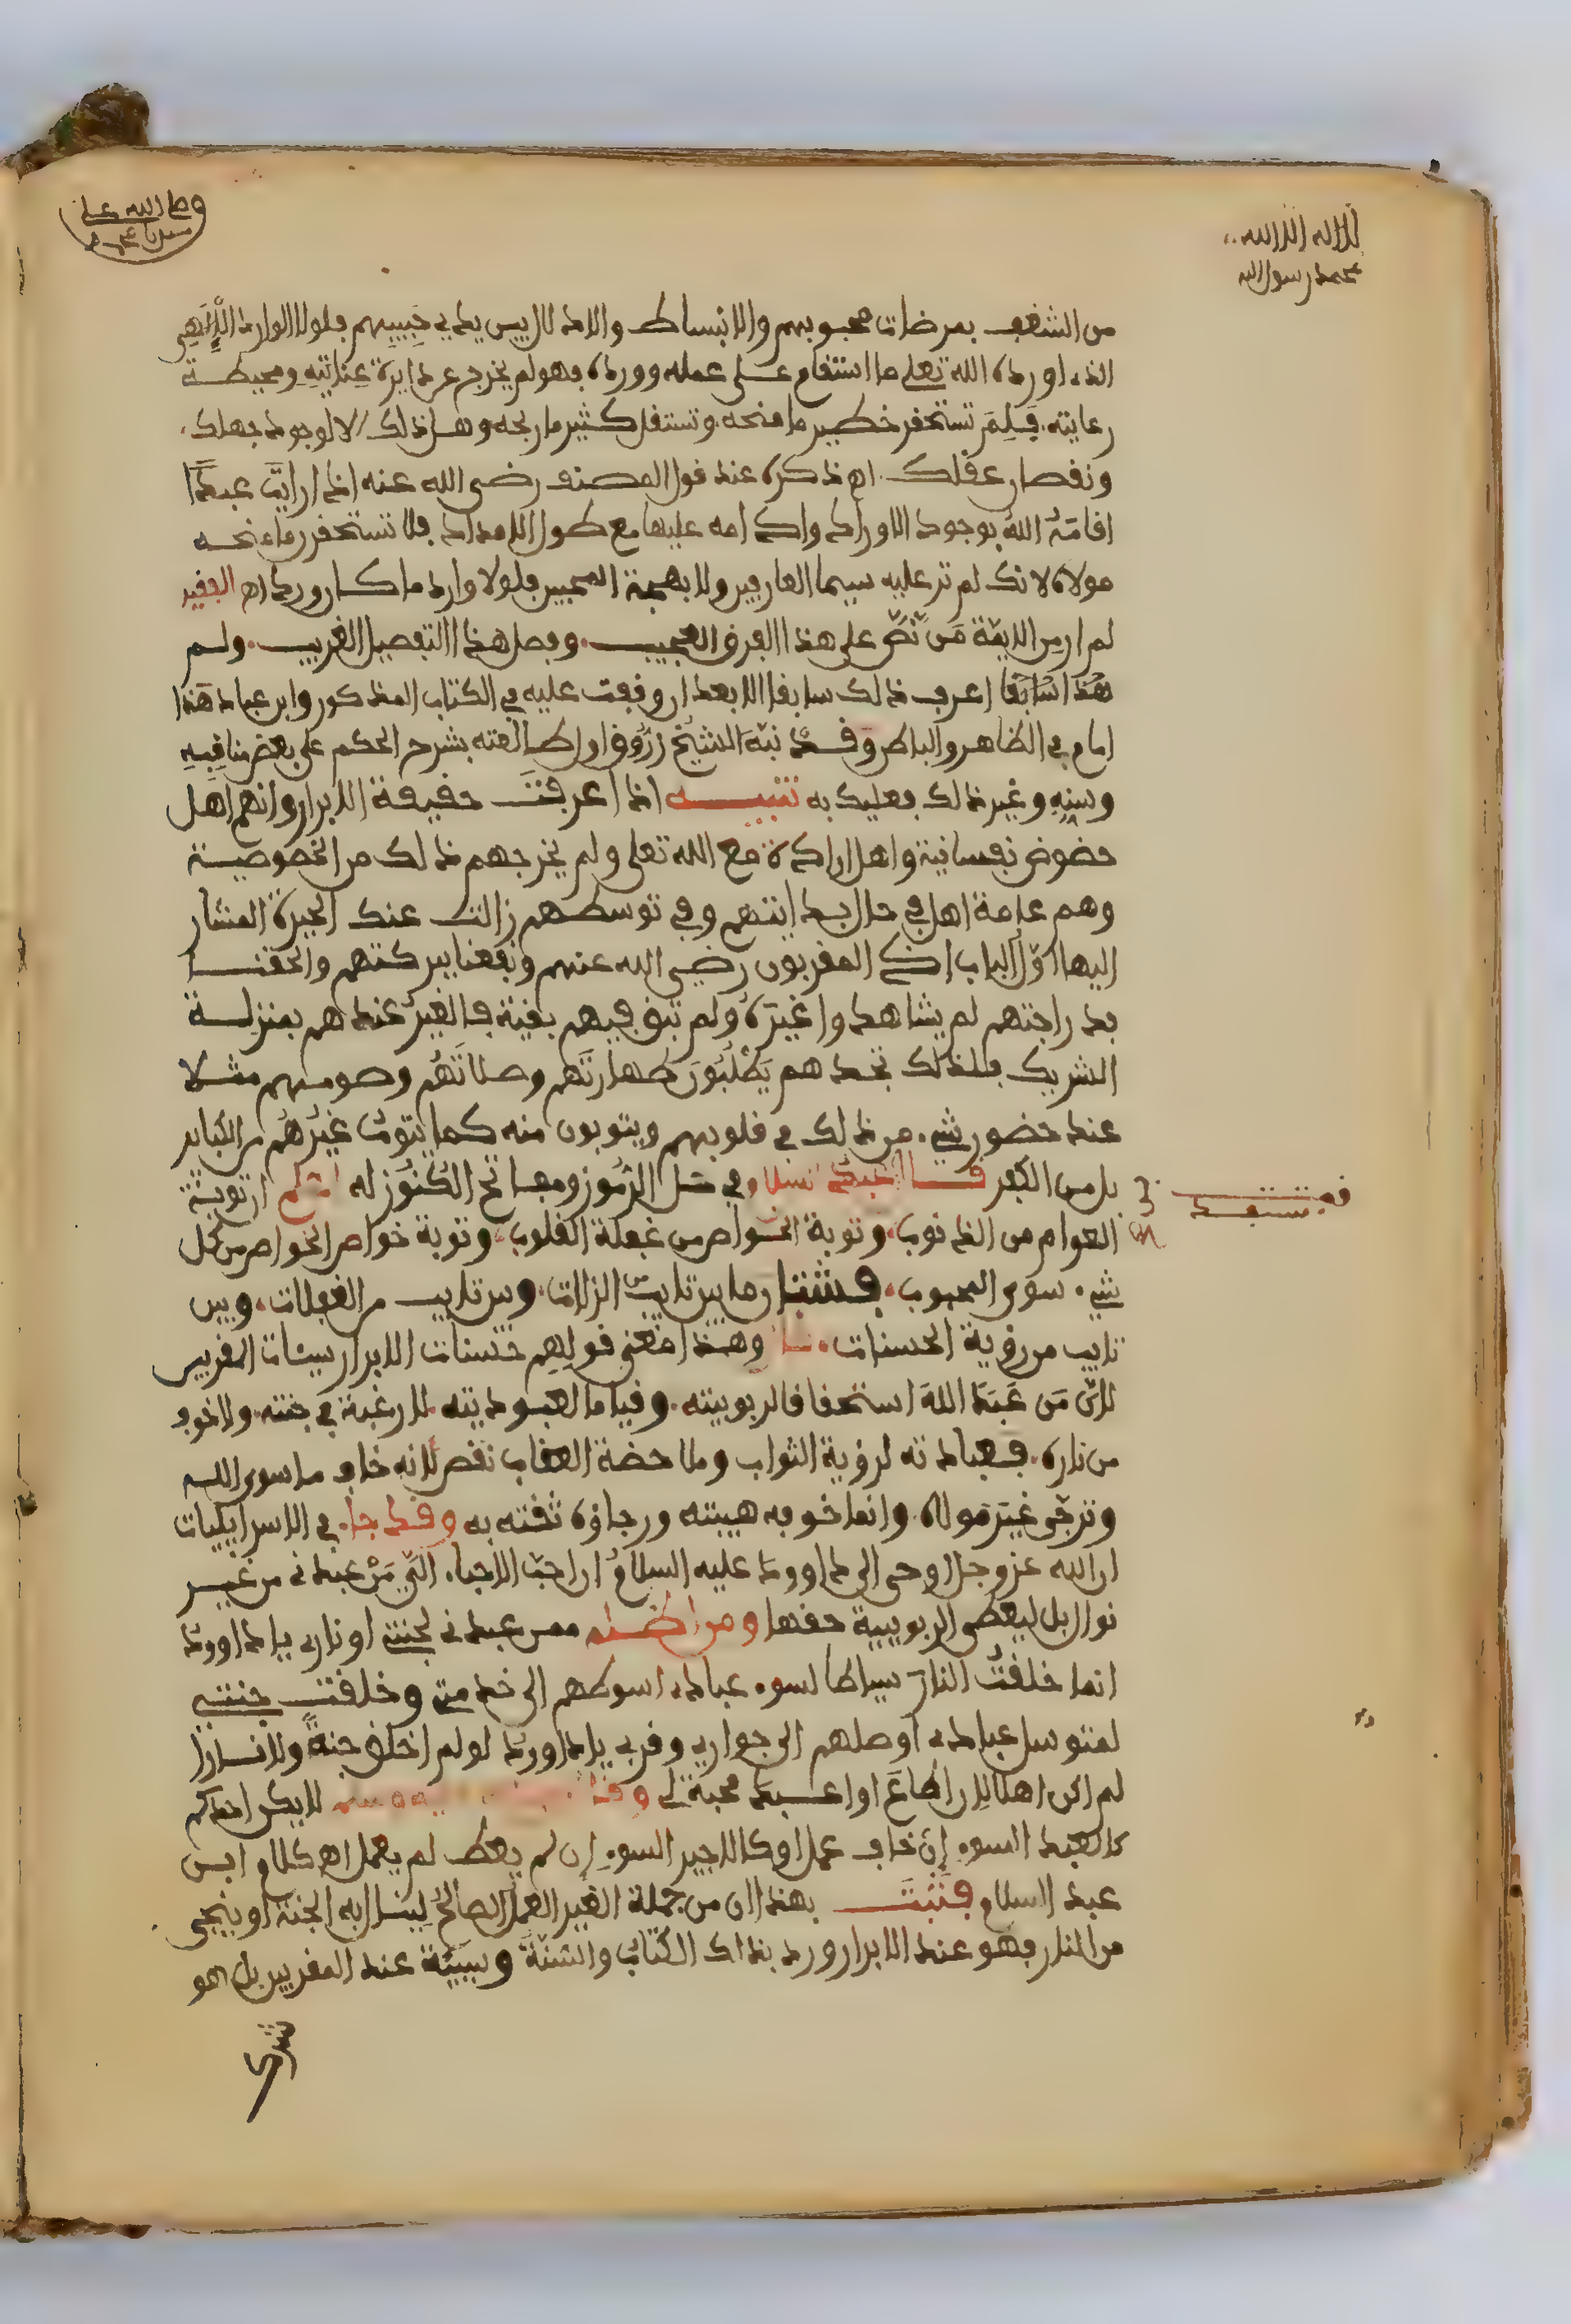 لا اله الا الله
محمد رسول الله
وصلى الله على
سيدنا محمد
من الشغف بمرضات محبوبهم والانبساط والادلال بين يدي حبيبهم فلولا الوارد الالهي
الذي اورده الله تعلى ما استقام على عمله وورده فهو لم يخرج عن دايرة عنايته ومحيطة
رعايته فلم تستحقر خطير ما منحه وتستقل كثير ما ربحه وهل ذلك الا لوجود جهلك
ونقصان عقلك اه ذكره عند قول المصنف رضي الله عنه اذا رايت عبدا
اقامه الله بوجود الاوراد وادامه عليها مع طول الامداد فلا تستحقرن ما منحه
مولاه لانك لم تر عليه سيما العارفين ولا بهجة المحبين فلولا وارد ما كان ورد اه الفقير
لم ار من الايمة من نص على هذا الفرق العجيب وفصل هذا التفصيل الغريب ولم
اعرف ذلك سابقا الا بعد ان وقفت عليه في الكتاب المذكور وابن عباد هذا
امام في الظاهر والباطن وقد نبه الشيخ زروق اول طالعته بشرح الحكم على بعض مناقبه
وسنه وغير ذلك فعليك به تنبيه اذا عرفت حقيقة الابرار وانهم اهل
حضوض نفسانية واهل ارادة مع الله تعلى ولم يخرجهم ذلك من الخصوصية
وهم عامة اهل في حال بدايتهم وفي توسطهم زالت عنك الحيرة المشار
اليها اول الباب اذ المقربون رضي الله عنهم ونفعنا ببركتهم والحقنا
بدراجتهم لم يشاهدوا غيره ولم تبق فيهم بقية فالغير عندهم بمنزلة
الشريك فلذلك تجدهم يطلبون طهارتهم وصلاتهم وصومهم مثلا
عند حضور شيء من ذلك في قلوبهم ويتوبون منه كما يتوب غيرهم من الكباير
بل من الكفر قال عبد السلام في حل الرموز ومفاتح الكنوز له اعلم ان توبة
العوام من الذنوب وتوبة الخواص من غفلة القلوب وتوبة خواص الخواص من كل
شيء سوى المحبوب فشتان ما بين تايب من الزلات وبين تايب من الغفلات وبين
تايب من رؤية الحسنات وهذا معنى قولهم حسنات الابرار سيئات المقربين
لان من عبد الله استحقاقا لربوبيته وقياما لعبوديته لا رغبة في جنته ولا خوف
من ناره فعبادته لرؤية الثواب وملاحضة العقاب نقص لانه خاف ما سوى الله
وترجى غير مولاه وانما خوفه هيبته ورجاؤه ثقته به وقد جاء في الاسراييليات
ان الله عز وجل اوحى الى داوود عليه السلام ان احب الاحباء الي من عبدني من غير
نوال بل ليعطي الربوبية حقها ومن اظلم ممن عبدني لجنتي او ناري يا داوود
انما خلقت النار سياطا لسوء عبادي اسوطهم الى خدمتي وخلقت جنتي
لمتوسل عبادي اوصلهم الى جواري وقربي يا داوود لو لم اخلق جنة ولا نارا
لم اكن اهلا لان اطاع او اعبد محبة لي وقال لا يكن احدكم
كالعبد السوء إن خاف عمل او كالاجير السوء إن لم يعط لم يعمل اه كلام ابن
عبد السلام فثبت بهذا ان من جملة الغير العمل الصالح لينال به الجنة او ينجى
من النار فهو عند الابرار ورد بذلك الكتاب والسنة وسيئة عند المقربين بل هو